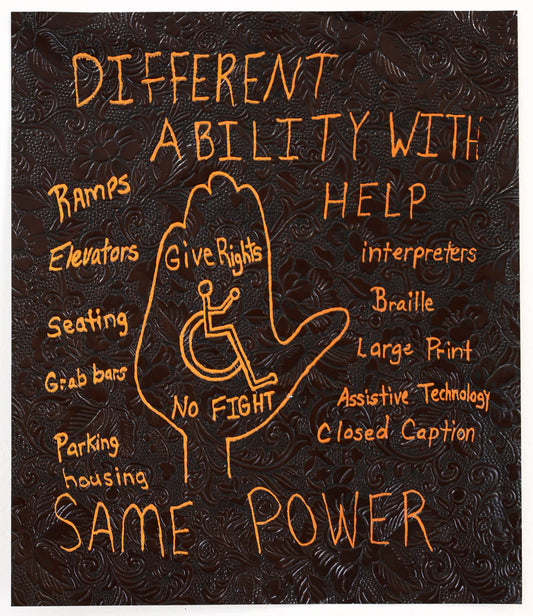 DIFFERENT
ABILITY WITH
HELP
RAMPS
Elevators
Seating
Grab bars
Parking
housing
Give Rights
NO FIGHT
interpreters
Braille
Large Print
Assistive Technology
Closed Caption
SAME POWER